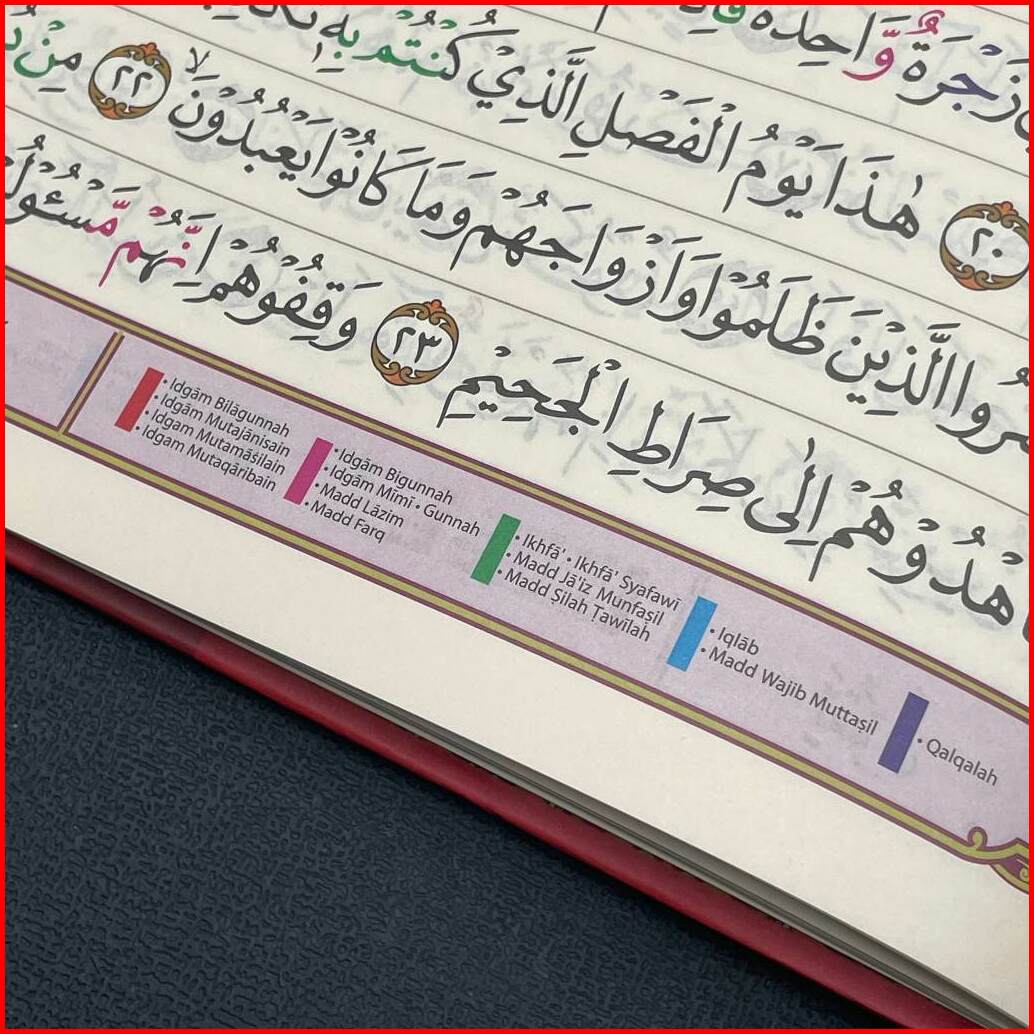 زَجْرَةٌ وَّاحِدَةٌ
٢٠ هٰذَا يَوْمُ الْفَصْلِ الَّذِيْ كُنْتُمْ بِهٖ
شُرُوا الَّذِيْنَ ظَلَمُوْا وَاَزْوَاجَهُمْ وَمَا كَانُوْا يَعْبُدُوْنَۙ ٢٢ مِنْ
هْدُوْهُمْ اِلٰى صِرَاطِ الْجَحِيْمِ ٢٣ وَقِفُوْهُمْ اِنَّهُمْ مَّسْـُٔوْلُ
• Idgām Bilāgunnah
• Idgām Mutajānisain
• Idgam Mutamāṡilain
• Idgam Mutaqāribain
• Idgām Bigunnah
• Idgām Mīmī • Gunnah
• Madd Lāzim
• Madd Farq
• Ikhfā' • Ikhfā' Syafawī
• Madd Jā'iz Munfaṣil
• Madd Ṣilah Ṭawīlah
• Iqlāb
• Madd Wajib Muttaṣil
• Qalqalah